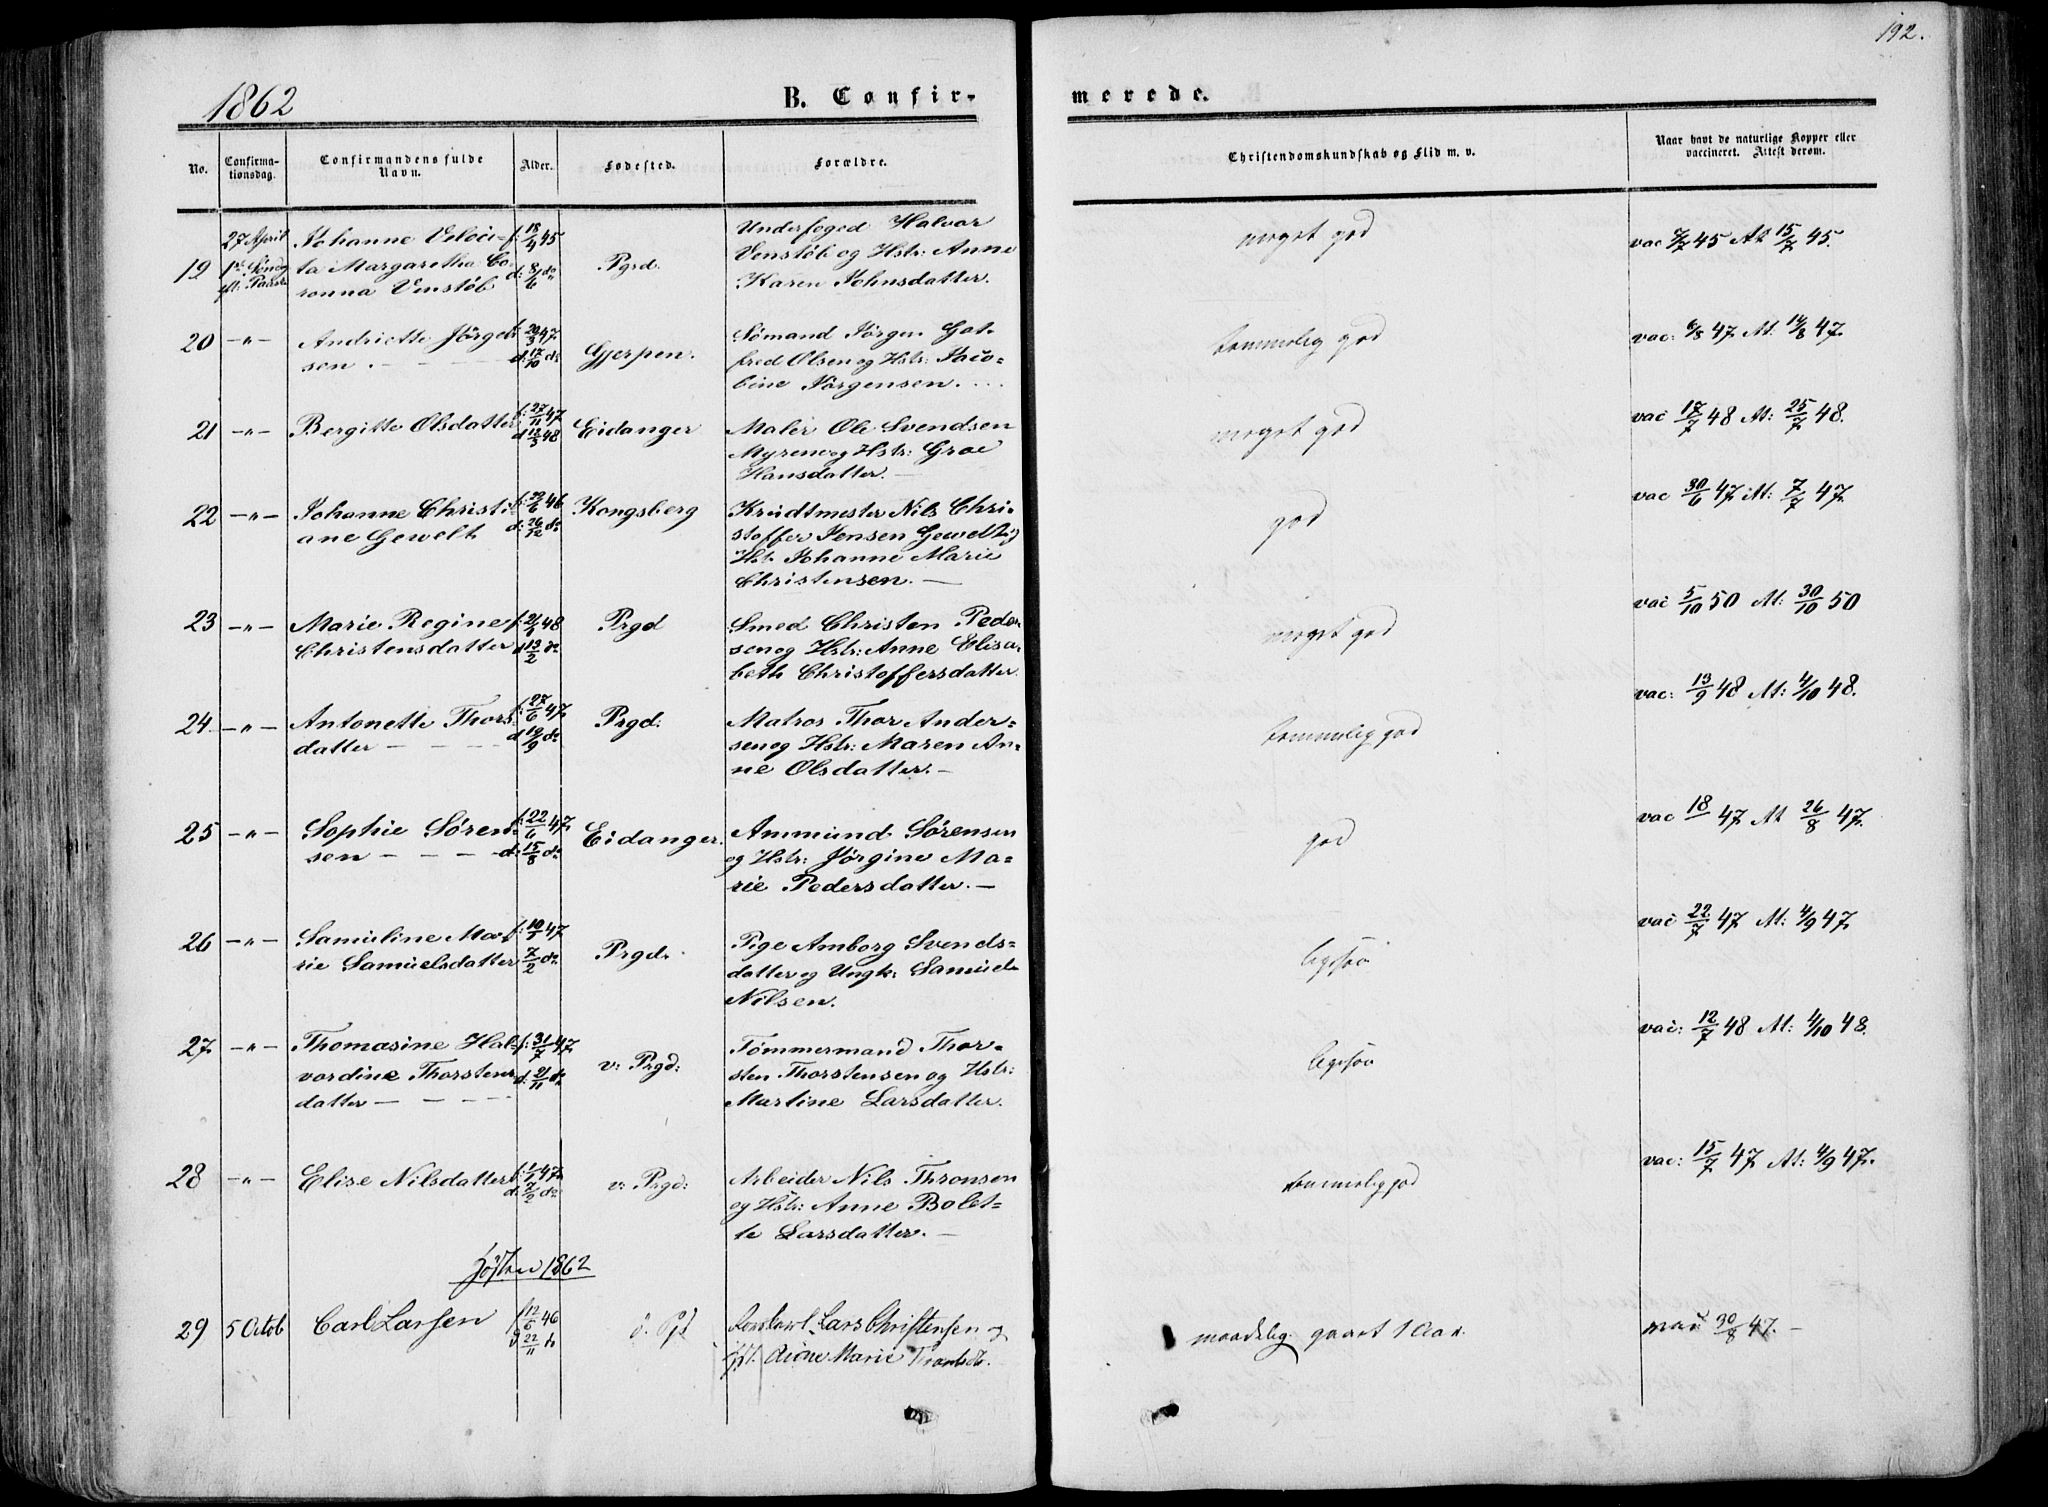 192.
1862
B. Confir-
merede.
No.
Confirma-
tionsdag.
Confirmandens fulde
Navn.
Alder.
Fødested.
Forældre.
Christendomskundskab og Flid m. v.
Naar havt de naturlige Kopper eller
vaccineret. Attest derom.
19
27 April
1st Søndg
ft: Paaske
Johanne
ta Margaretha Co-
ronna Venstöb
f: 18/4 45
d: 8/6 do
Pgrd.
Underfoged Halvor
Venstöb og Hstr: Anne
Karen Johnsdatter.
meget god
vac 7/7 45 At 15/7 45.
20 -"-
Andriette Jörgen-
sen.
f: 20/3 47
d: 17/10 do
Gjerpen.
Sömand Jörgen Got-
fred Olsen og Hstr: Jaco-
bine Jörgensen.
temmelig god
vac: 6/8 47 At: 14/8 47.
21 -"-
Bergitte Olsdatter
f: 27/11 47
d 12/3 48
Eidanger
Maler Ole Svendsen
Myren og Hstr: Groe
Hansdatter. -
meget god
vac 17/7 48 At: 25/7 48.
22 -"-
Johanne Christi-
ane Gewelt
f: 22/6 46
d: 26/12 do
Kongsberg
Krudtmester Nils Chri-
stoffer Jensen Gewelt og
Hst: Johanne Marie
Christensen. -
god
vac 30/6 47 At: 7/7 47.
23 -"-
Marie Regine
Christensdatter
f: 2/1 48
d 13/2 do
Prgd
Smed Christen Peder-
sen og Hstr: Anne Elisa-
beth Christoffersdatter
meget god
vac 5/10 50 At: 30/10 50
24 -"-
Antonette Thors-
datter
f: 27/6 47
d 19/9 do
Prgd:
Matros Thor Ander-
sen og Hstr: Maren An-
ne Olsdatter. -
temmelig god
vac: 13/9 48 At: 4/10 48.
25 -"-
Sophie Sören-
sen
f: 22/6 47
d: 15/8 do
Eidanger.
Ammund Sörensen
og Hstr: Jörgine Ma-
rie Pedersdatter. -
god
vac 18 47 At 26/8 47.
26 -"-
Samueline Ma-
rie Samuelsdatter
f: 10/1 47
7/2 do
Prgd:
Pige Amborg Svends-
datter og Ungk: Samuel
Nilsen.
ligesaa
vac 22/7 47 At: 4/9 47
27 -"-
Thomasine Hal-
vordine Thorstens
datter
f: 31/7 47
d: 21/11 do
v: Prgd:
Tömmermand Thor-
sten Thorstensen og Hstr:
Martine Larsdatter.
ligesaa
vac: 12/7 48 At: 4/10 48.
28 -"-
Elise Nilsdatter
f: 1/1 47
d: 7/2 do
v: Prgd:
Arbeider Nils Thronsen
og Hstr: Anne Bolet-
te Larsdatter. -
temmelig god
vac: 15/7 47 At: 4/9 47.
Hösten 1862
29 5 Octob
Carl Larsen
f 12/6 46
d 22/11 do
Lars Christensen og
Hst. Marie
maadelig. gaaet 1 Aar.
vac 30/8 47. -